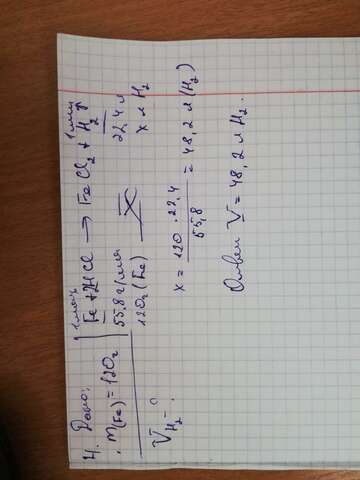 4. Дано:
m(Fe) = 120г
V H₂ - ?
1 моль 1 моль
Fe + 2HCl → FeCl₂ + H₂↑
55,8 г/моль 22,4 л
120г (Fe) X x л H₂
x = 120 · 22,4 / 55,8 = 48,2 л (H₂)
Ответ V = 48,2 л H₂.